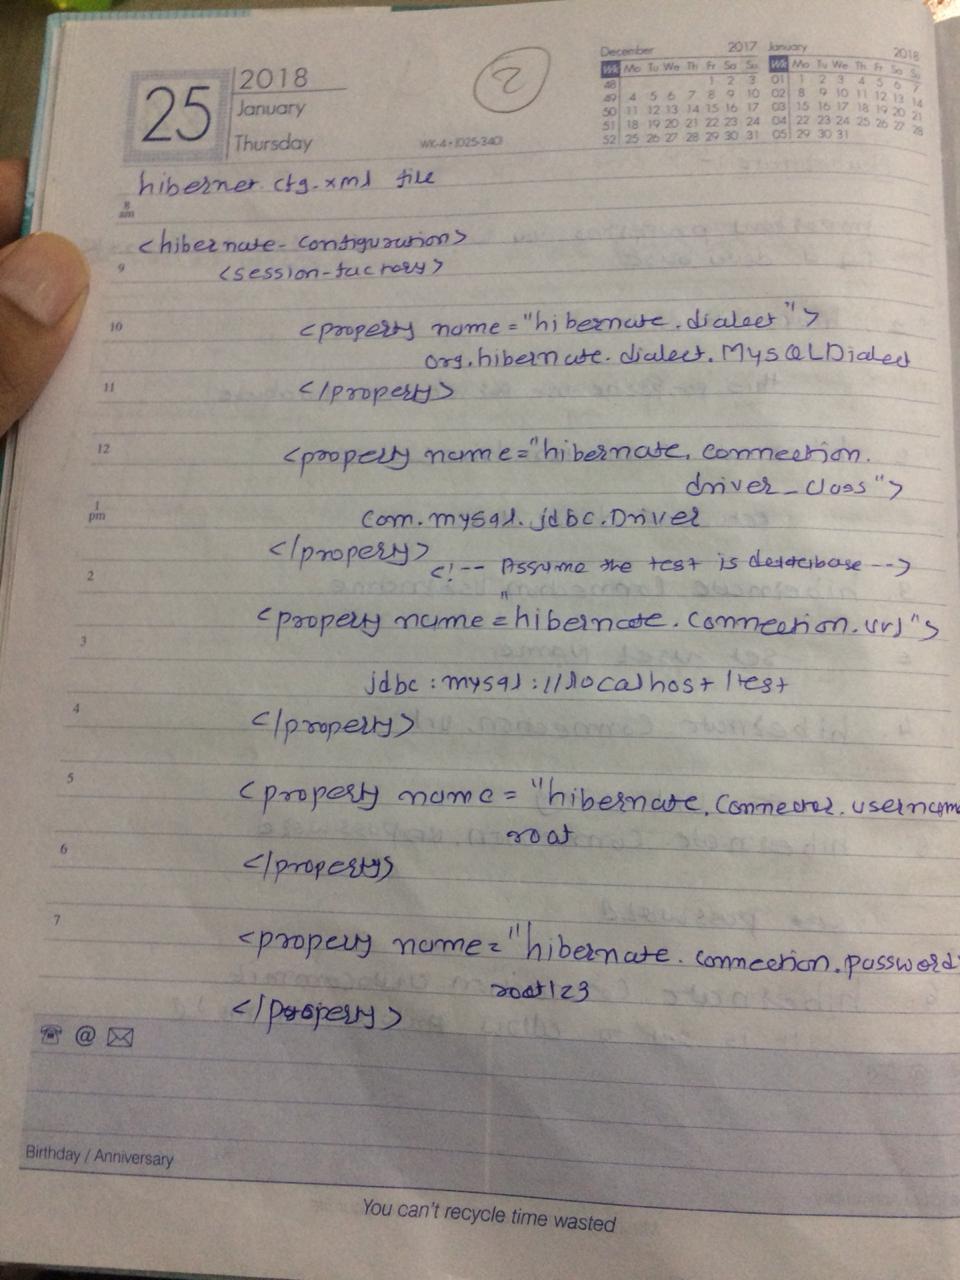 25
2018
January
Thursday
2
WK-4 • (025-340)
December 2017
Wk Mo Tu We Th Fr Sa Su
48 1 2 3
49 4 5 6 7 8 9 10
50 11 12 13 14 15 16 17
51 18 19 20 21 22 23 24
52 25 26 27 28 29 30 31
January 2018
Wk Mo Tu We Th Fr Sa Su
01 1 2 3 4 5 6 7
02 8 9 10 11 12 13 14
03 15 16 17 18 19 20 21
04 22 23 24 25 26 27 28
05 29 30 31
hiberner.cfg.xml file
8 am
<hibernate-configuration>
9
<session-factory>
10
<property name="hibernate.dialect">
org.hibernate.dialect.MySQLDialect
11
</property>
12
<property name="hibernate.connection.
driver_class">
1 pm
com.mysql.jdbc.Driver
</property>
<!-- Assume the test is database -->
2
<property name="hibernate.connection.url">
3
jdbc:mysql://localhost/test
4
</property>
5
<property name="hibernate.connector.usernam
root
6
</property>
7
<propery name="hibernate.connection.password
root123
</property>
@
Birthday / Anniversary
You can't recycle time wasted